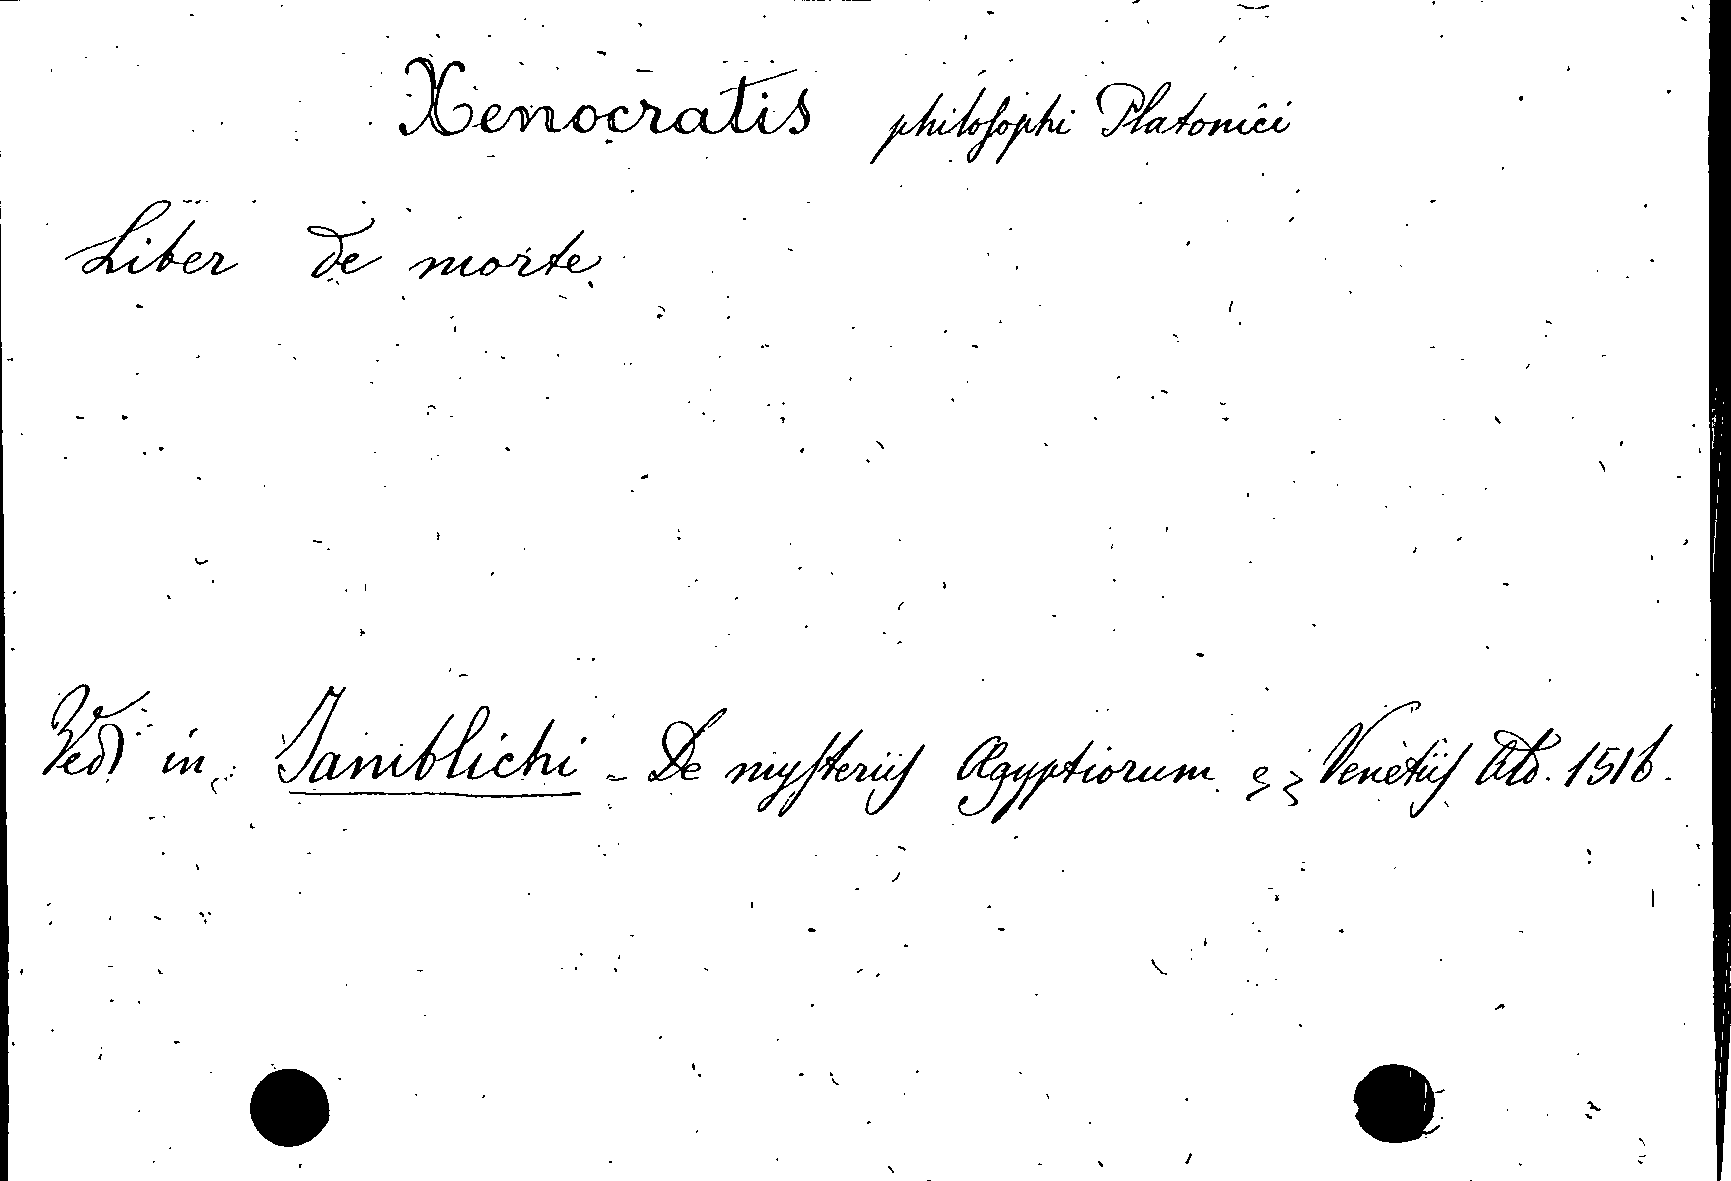 Xenocratis philosophi Platonici
Liber de morte
Vedi in Iamblichi - De mysteriis Ægyptiorum Venetiis Ald. 1516.